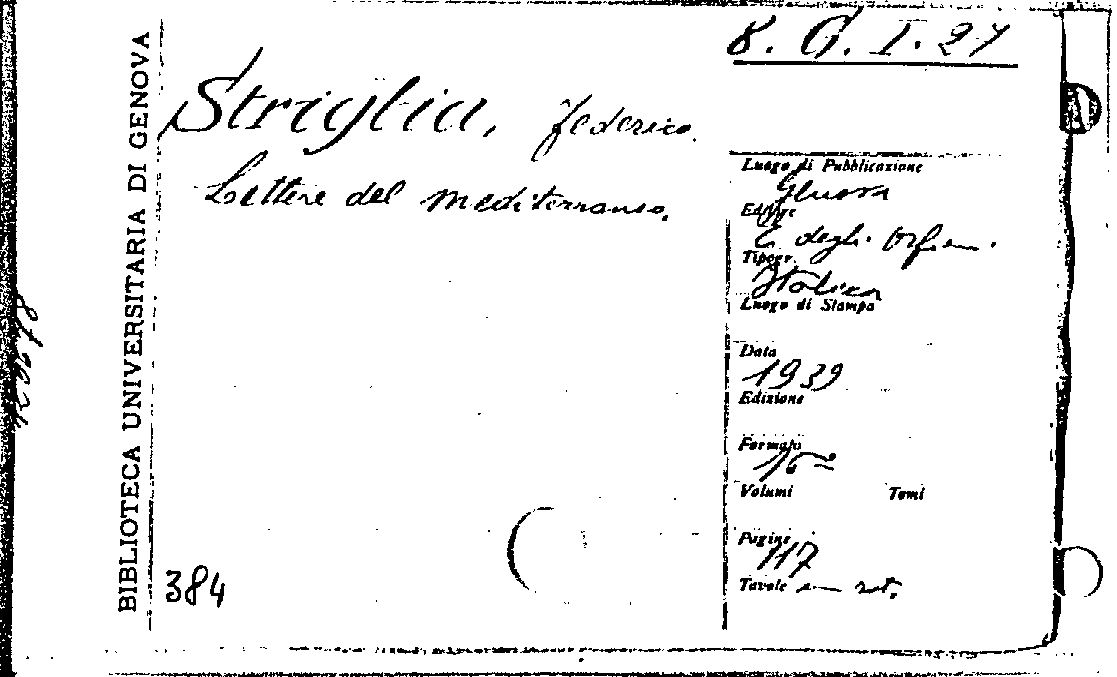 BIBLIOTECA UNIVERSITARIA DI GENOVA
8. G. I. 27
Striglia, Federico.
Lettere del mediterraneo.
Luogo di Pubblicazione
Genova
Editore
E. degli Orfani.
Tipogr.
Italica
Luogo di Stampa
Data
1939
Edizione
Formato
16º
Volumi Tomi
Pagine
117
Tavole
384